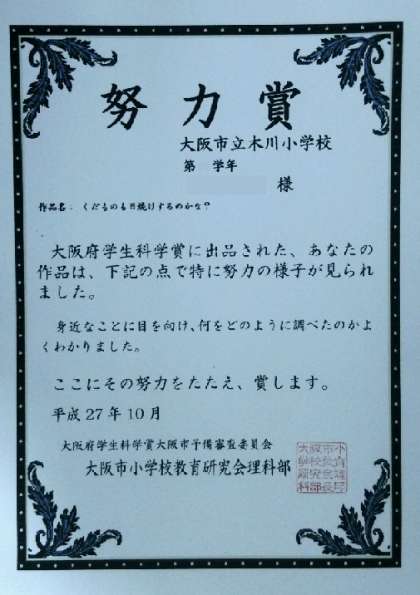 努力賞
大阪市立木川小学校
第 学年
様
作品名： くだものも日焼けするのかな？
大阪府学生科学賞に出品された、あなたの
作品は、下記の点で特に努力の様子が見られ
ました。
身近なことに目を向け、何をどのように調べたのかよ
くわかりました。
ここにその努力をたたえ、賞します。
平成27年10月
大阪府学生科学賞大阪市予備審査委員会
大阪市小学校教育研究会理科部